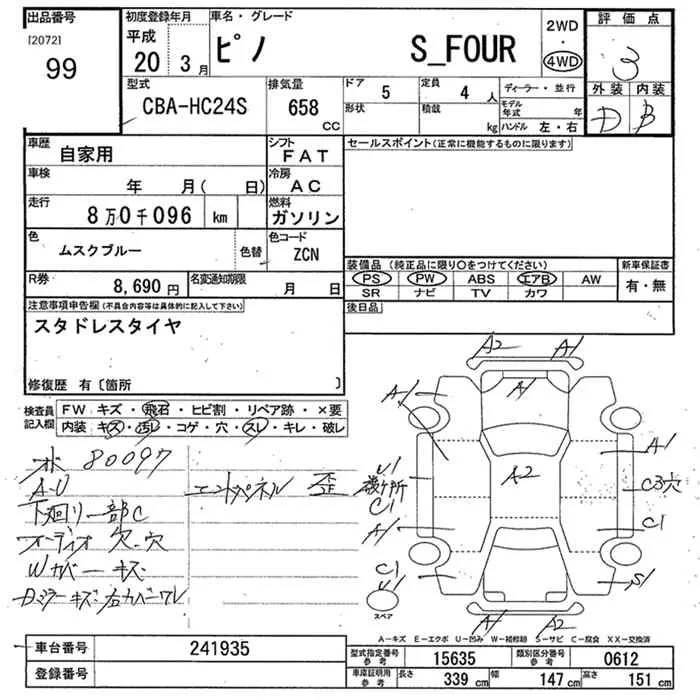 出品番号
[2072]
99
初度登録年月
平成
20 3月
車名・グレード
ピノ S_FOUR
2WD
・
4WD
評価点
3
外装 内装
D B
型式
CBA-HC24S
排気量
658
CC
ドア 5
定員 4 人
形状
積載 kg
ディーラー・並行
モデル年式 年
ハンドル 左・右
車歴
自家用
シフト
FAT
セールスポイント(正常に機能するものに限ります)
車検
年 月( 日)
冷房
AC
走行
8万0千096 km
燃料
ガソリン
色
ムスクブルー
色替
色コード
ZCN
装備品 (純正品に限り○をつけてください)
新車保証書
PS PW ABS エアB AW
SR ナビ TV カワ
有・無
R券
8,690円
名変通知期限
月 日
後日品
注意事項申告欄(不具合内容等は具体的に記入して下さい)
スタドレスタイヤ
修復歴 有〔箇所 〕
検査員記入欄
FW キズ・飛石・ヒビ割・リペア跡・×要
内装 キズ・汚レ・コゲ・穴・スレ・キレ・破レ
80097
A-U
エンドパネル 歪
下廻り一部C
オーディオ 穴・穴
Wカバーキズ
A2 A1
A1 A1
A1
A2
U1
C1
C3穴
A1
C1
C1
U1
S1
A1 A2
スペア
A-キズ E-エクボ U-凹み W-補修跡 S-サビ C-腐食 XX-交換済
車台番号
241935
登録番号
型式指定番号 参考
15635
類別区分番号 参考
0612
車庫証明用 参考
長さ 339 cm
幅 147 cm
高さ 151 cm